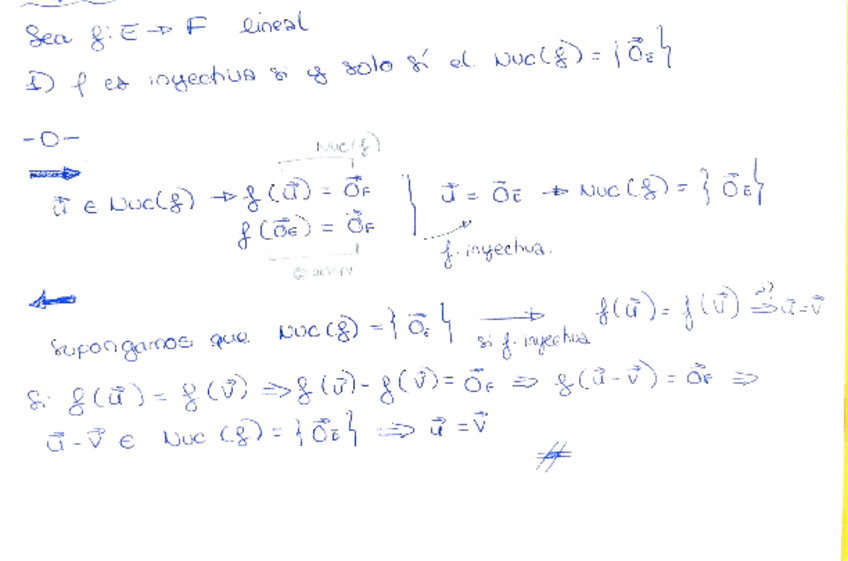 Sea f: E → F lineal
I) f es inyectiva si y solo sí el Nuc(f) = {0⃗_E}
-0-
⟹ Nuc(f)
u⃗ ∈ Nuc(f) → f(u⃗) = 0⃗_F } u⃗ = 0⃗_E → Nuc(f) = {0⃗_E}
f(0⃗_E) = 0⃗_F
f. inyectiva.
⟸
Supongamos que Nuc(f) = {0⃗_E} ⟶ f(u⃗) = f(v⃗) ⟹ u⃗ = v⃗
si f. inyectiva
Si f(u⃗) = f(v⃗) ⟹ f(u⃗) - f(v⃗) = 0⃗_F ⟹ f(u⃗ - v⃗) = 0⃗_F ⟹
u⃗ - v⃗ ∈ Nuc(f) = {0⃗_E} ⟹ u⃗ = v⃗
#